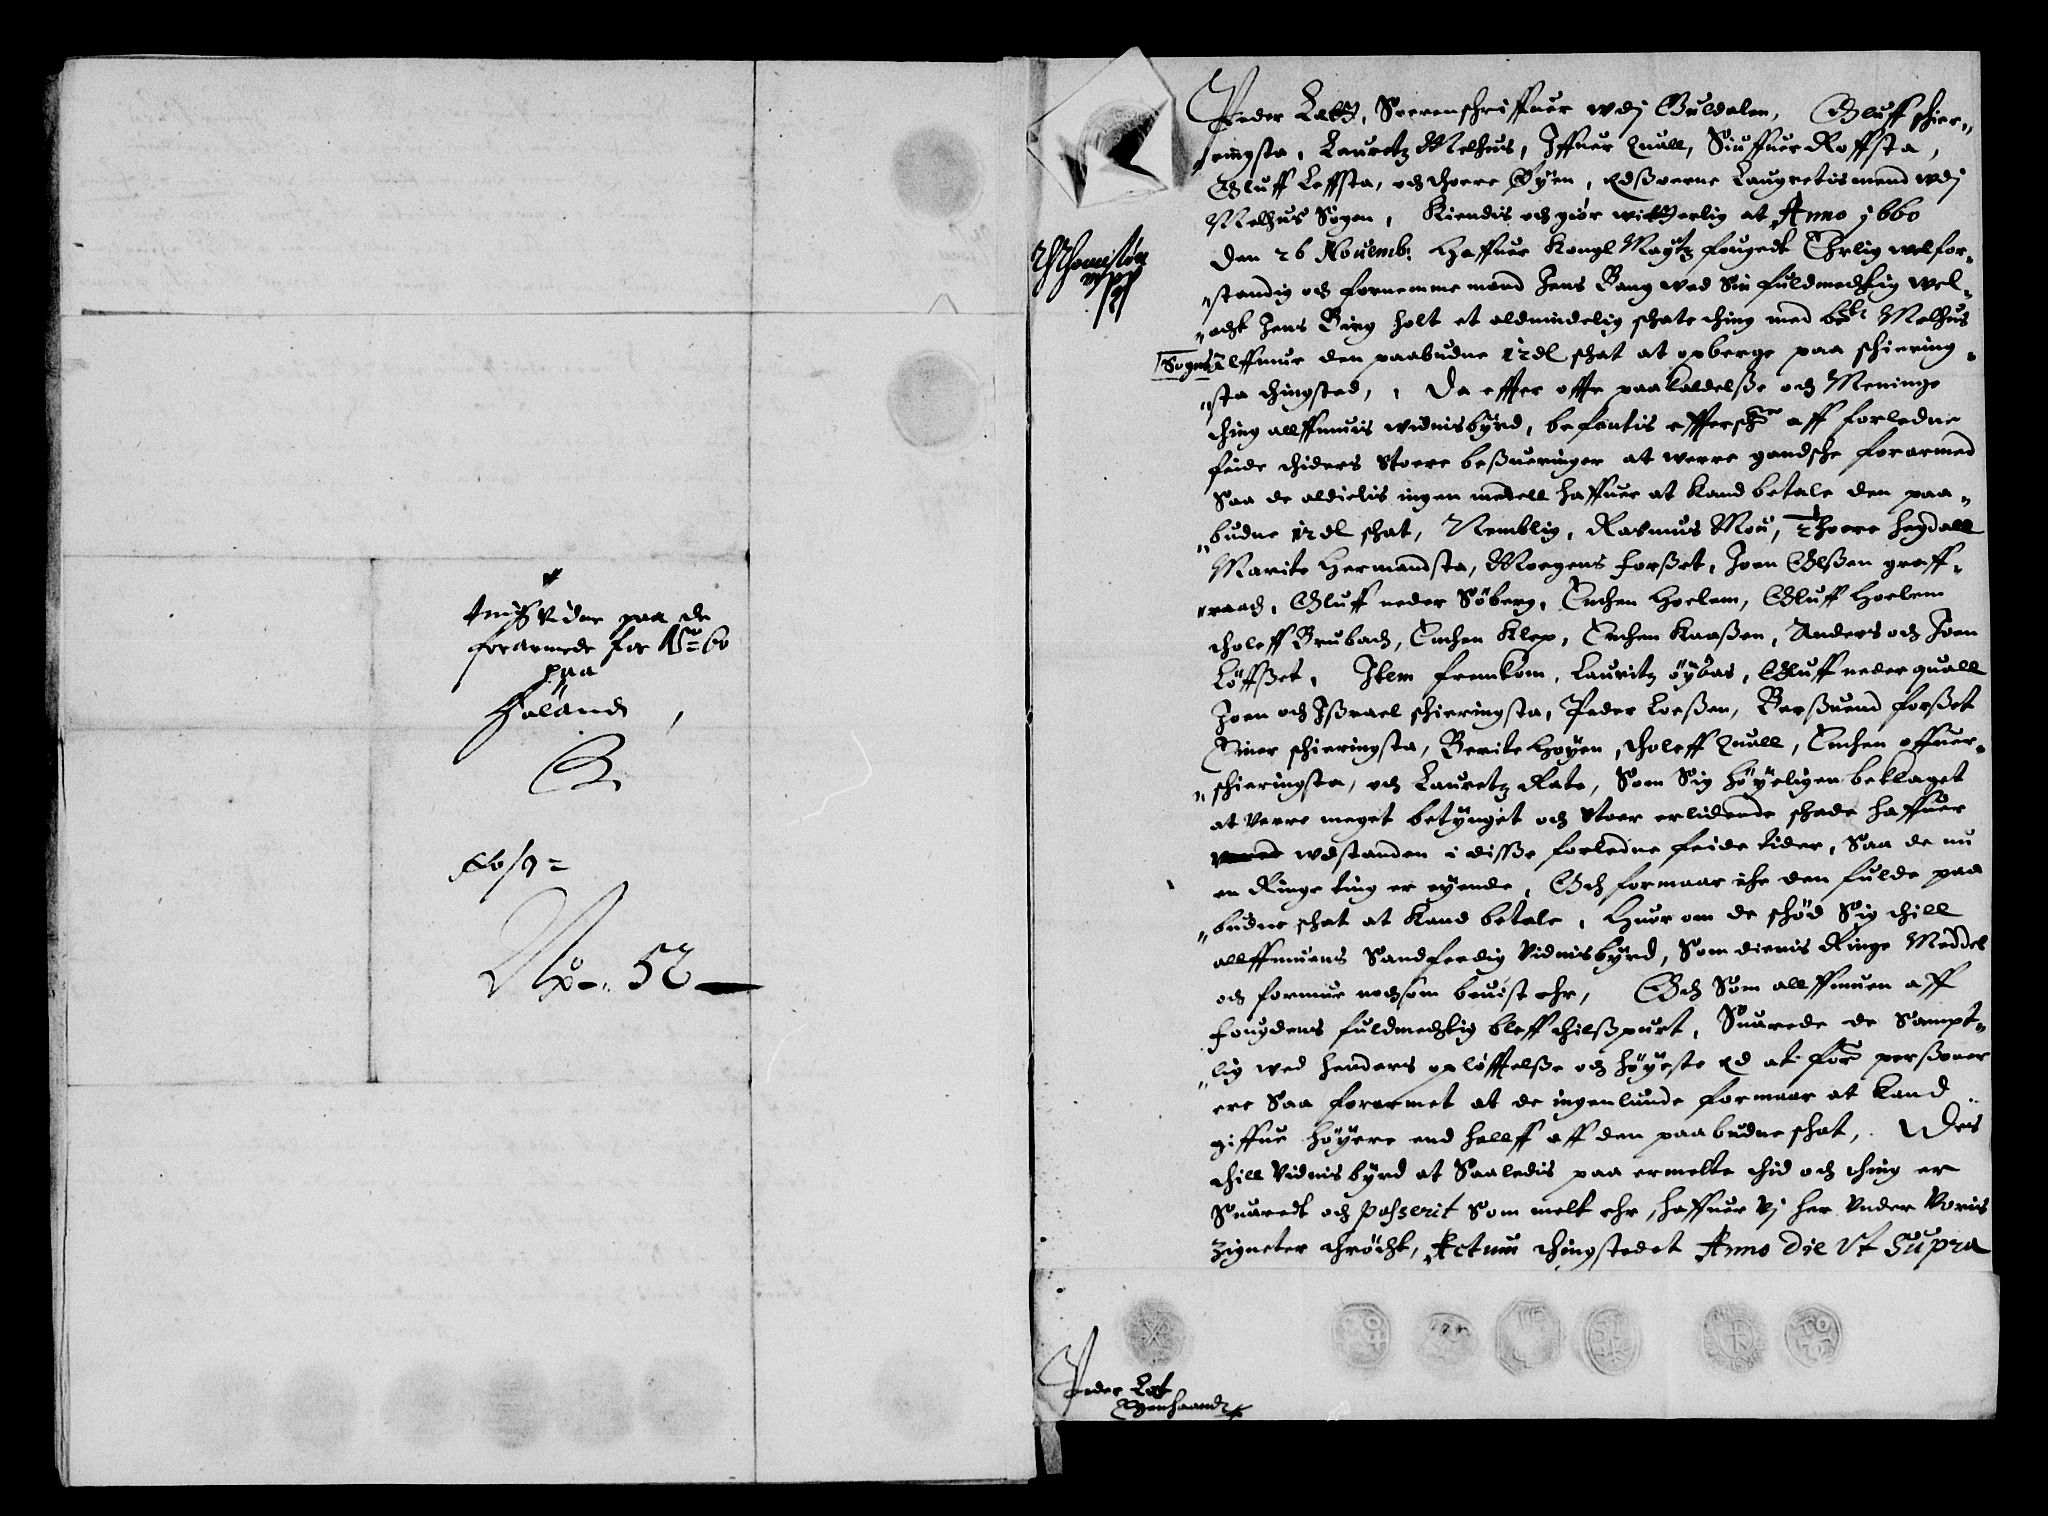 tings Vidne paa de
forarmede for Aõ 60
paa
Høland,
No. 52
Peder Lotz, Soerenschriffuer wdj Guldalen, Oluff schier-
ringsta, Lauretz Melhus, Iffuer quall, Siuffuer Roffsta,
Oluff Leffsta, och thoere Øyen, Edßoerne Laugretismend wdj
Melhus Sogen, Kiendis och giør witterlig at Anno 1660
Den 26 Nouemb: Haffuer Kongl Maytz fougedt Ehrlig welfor-
standig och fornemme mand Jens Bang wed Sin fuldmechtig wel-
acht Jens Bing holt et almindelig schate thing med beste Melhus
Sogns
Alffmue den paabudne 12 dl schat at opberge paa schiering-
sta thingsted, Da effter offte paakaldelße och Meninge
thing allffmuis widnisbyrd, befantis effterschr aff forledne
feide thiders Stoere beßueringer at werre gandsche forarmed
Saa de aldielis ingen medell haffuer at kand betale den paa-
budne 12 dl schat, Nemblig, Rasmus Moe, Thoere hegdall
Marite Hermandsta, Mogens Forßet, Joen Olßen graff-
raach, Oluff neder Søberg, Enchen Hoelem, Oluff Hoelem
tholeff Brubach, Enchen Klep, Enchen Kaaßen, Anders och Joen
Løffßet, Item fremkom, Lauritz øybas, Oluff neder quall
Joen och Ißrael schieringsta, Peder Loeßen, Berßuend forßet
Einer schieringsta, Berite Hoyen, tholeff quall, Enchen offuer-
schieringsta, och Lauretz Rate, Som Sig høyeligen beklaget
at verre meget betynget och stoer erlidende schade haffuer
wdstanden i disße forledne feide tider, Saa de nu
en Ringe ting er eyende, Och formaar iche den fulde paa
budne schat at kand betale, Huor om de schød Sig thill
allffmuens Sandferdig Vidnisbyrd, Som dieris Ringe Meddel
och formue nochsom beuist ehr, Och Som allffmuen aff
Fougdens fuldmechtig bleff thilßpurt, Suarede de Sampt-
lig wed henders opløffelße och høyeste Ed at forne perßoner
ere Saa forarmet at de ingenlunde formaar at kand
giffue høyere end hallff aff den paabudne schat, Dis
thill Vidnisbyrd at Saaledis paa ermelte thid och thing er
Suaredt och passerit Som melt ehr, haffuer Vj her Vnder Voris
Zigneter thrøcht, Actum thingstedet Anno Die Vt Supra
Peder Lot
Egenhaandt